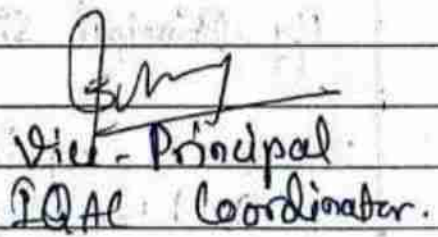 Vice-Principal
IQAC Coordinator.